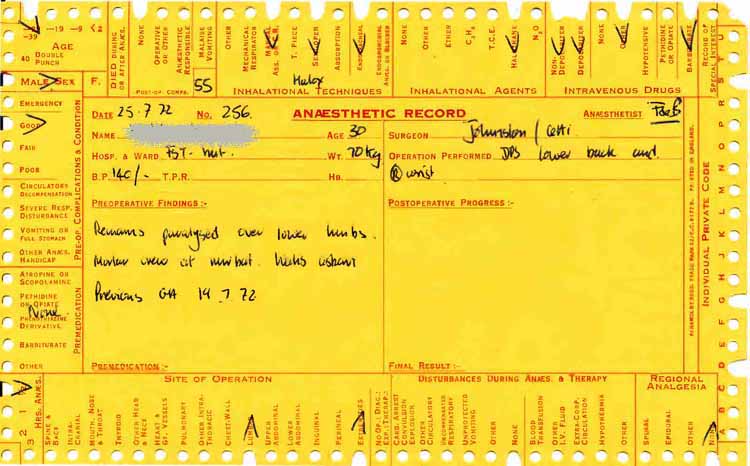 -19 -9 <2
-39
AGE
40 DOUBLE PUNCH
DIED DURING OR AFTER ANÆS.
NONE
OPERATIVE OR OTHER
ANÆSTHETIC RESPONSIBLE
MALAISE VOMITING
OTHER
MECHANICAL RESPIRATOR
MANUAL ASS. OR C.R.
T. PIECE
SEMI-OPEN
ABSORPTION
ENDOTRACHEAL
ENDOBRONCHIAL ANÆS. OR BLOCKER
NONE
OTHER
ETHER
C3H6
T.C.E.
HALOTHANE
N2O
NON-DEPOLARISER
DEPOLARISER
NONE
OTHER
HYPOTENSIVE
PETHIDINE OR OPIATE
BARBITURATE
RECORD OF SPECIAL INTEREST
MALE SEX F.
POST-OP. COMPS.
55
Halox
INHALATIONAL TECHNIQUES
INHALATIONAL AGENTS
INTRAVENOUS DRUGS
DATE 25.7.72 NO. 256.
ANÆSTHETIC RECORD
ANÆSTHETIST
NAME AGE 30
SURGEON Johnston / Cetti
HOSP. & WARD FST- WT. 70 kg
OPERATION PERFORMED DPS lower back and
B.P. 140/- T.P.R. HB.
(R) wrist
PREOPERATIVE FINDINGS :-
POSTOPERATIVE PROGRESS :-
Remains paralysed over lower limbs.
Previous GA 19.7.72
PREMEDICATION :-
FINAL RESULT :-
EMERGENCY
GOOD
FAIR
POOR
CIRCULATORY DECOMPENSATION
SEVERE RESP. DISTURBANCE
VOMITING OR FULL STOMACH
OTHER ANÆS. HANDICAP
PRE-OP. COMPLICATIONS & CONDITION
ATROPINE OR SCOPOLAMINE
PETHIDINE OR OPIATE
None
PHENOTHIAZINE DERIVATIVE
BARBITURATE
OTHER
PREMEDICATION
INDIVIDUAL PRIVATE CODE
A B C D E F G H I J K L M N O P R S T U
PRINTED IN ENGLAND.
3 2 1
HRS. ANÆS.
SITE OF OPERATION
SPINE & BACK
INTRA-CRANIAL
MOUTH, NOSE & THROAT
THYROID
OTHER HEAD & NECK
HEART & GT. VESSELS
PULMONARY
OTHER INTRA-THORACIC
CHEST-WALL
LUMBAR
UPPER ABDOMINAL
LOWER ABDOMINAL
INGUINAL
PERINEAL
EXTREMITIES
NO OP., DIAG., EXP. THERAP.
DISTURBANCES DURING ANÆS. & THERAPY
CARD. ARREST CONVULSION EXPLOSION
OTHER CIRCULATORY
UNCOMPENSATED RESPIRATORY
UNPROVOKED VOMITING
OTHER
NONE
BLOOD TRANSFUSION
OTHER I.V. FLUID
EXTRA-CORP. CIRCULATION
HYPOTHERMIA
OTHER
REGIONAL ANALGESIA
SPINAL
EPIDURAL
OTHER
NONE